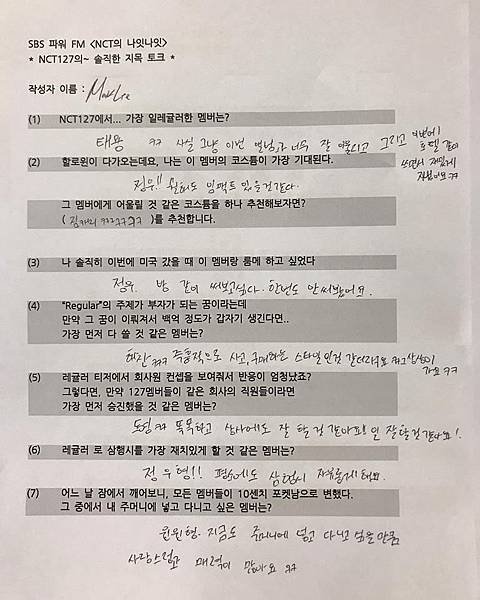 SBS 파워 FM <NCT의 나잇나잇>
* NCT127의~ 솔직한 지목 토크 *
작성자 이름 : Mark Lee
(1) NCT127에서... 가장 일레귤러한 멤버는?
태용 ㅋㅋ 사실 그냥 이번 너무 잘 어울리고 그리고 이번에 호텔 같이
쓰면서 재밌게
(2) 할로윈이 다가오는데요, 나는 이 멤버의 코스튬이 가장 기대된다.
정우!! 임팩트 있을것 같다.
그 멤버에게 어울릴 것 같은 코스튬을 하나 추천해보자면?
( ㅋㅋㅋㅋㅋ )를 추천합니다.
(3) 나 솔직히 이번에 미국 갔을 때 이 멤버랑 룸메 하고 싶었다
정우. 방 같이 써보고싶다. 한번도 안써봤어요.
(4) "Regular"의 주제가 부자가 되는 꿈이라는데
만약 그 꿈이 이뤄져서 백억 정도가 갑자기 생긴다면..
가장 먼저 다 쓸 것 같은 멤버는?
해찬 ㅋㅋㅋ 충동적으로 사고, 구매하는 스타일인것 같더라구요
가요 ㅋㅋ
(5) 레귤러 티저에서 회사원 컨셉을 보여줘서 반응이 엄청났죠?
그렇다면, 만약 127멤버들이 같은 회사의 직원들이라면
가장 먼저 승진했을 것 같은 멤버는?
도영 ㅋㅋ 똑똑하고 상사에도 잘 할 것 같아요! 일 잘할것 같아요!
(6) 레귤러 로 삼행시를 가장 재치있게 할 것 같은 멤버는?
정우형!! 평소에도 삼행시 자유롭게 해요.
(7) 어느 날 잠에서 깨어보니, 모든 멤버들이 10센치 포켓남으로 변했다.
그 중에서 내 주머니에 넣고 다니고 싶은 멤버는?
윈윈형. 지금도 주머니에 넣고 다니고 싶을 만큼
사랑스럽고 매력이 많아요 ㅋㅋ